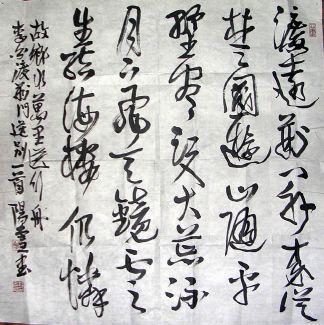 渡遠荊門外来從
楚國遊山隨平
野盡江入大荒流
月下飛天鏡雲
生結海樓仍憐
故鄉水萬里送行舟
李白渡荊門送別一首